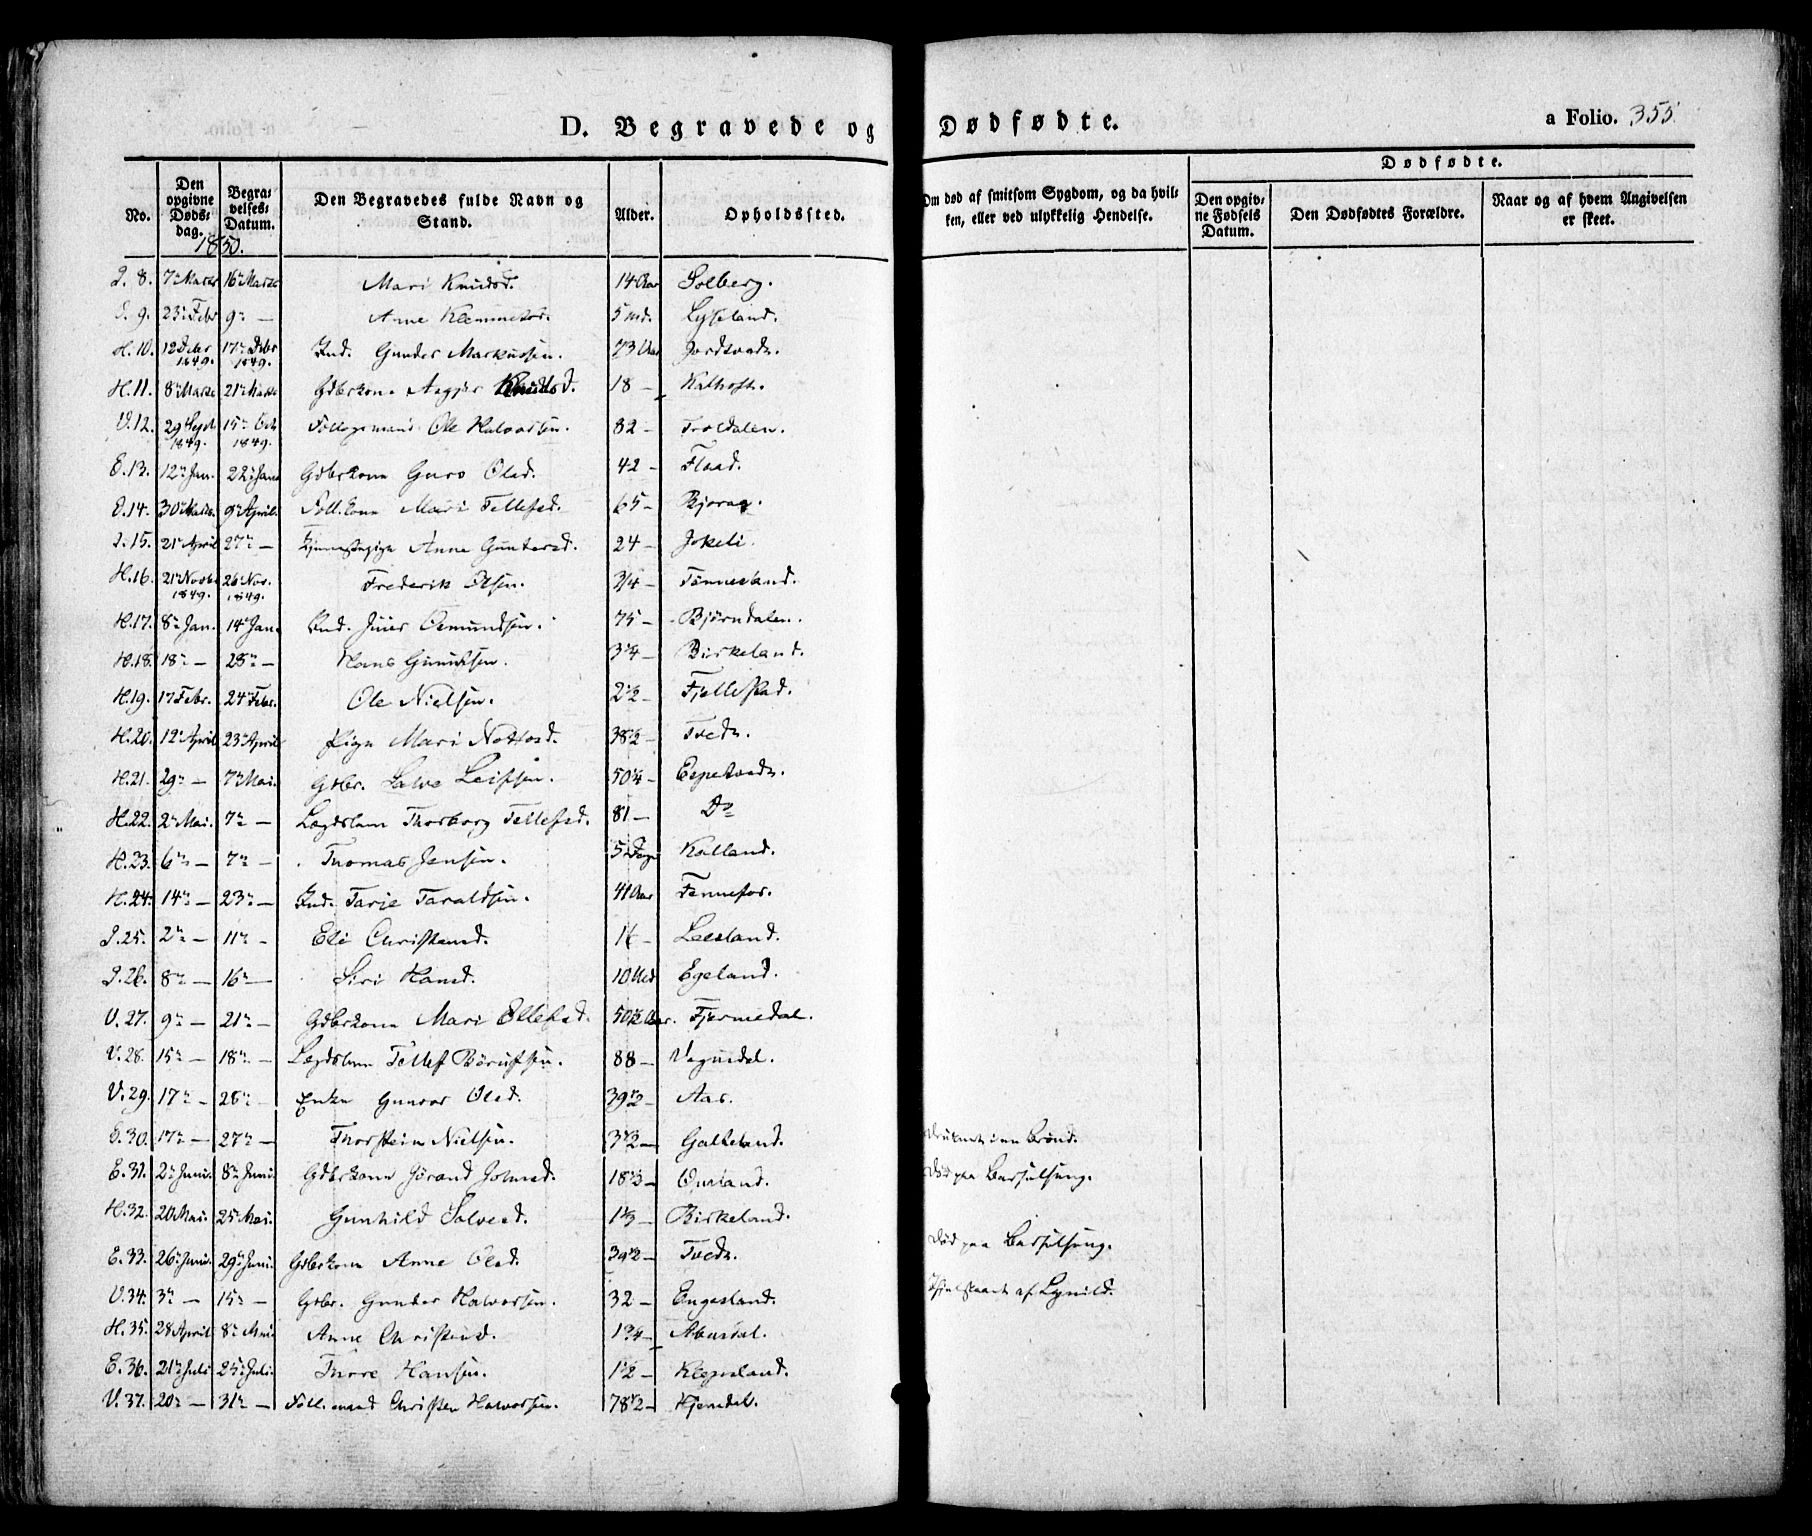 D. Begravede og Dødfødte. a Folio. 355
Dødfødte.
No. Den opgivne Dødsdag. Begravelses Datum. Den Begravedes fulde Navn og Stand. Alder. Opholdssted. Om død af smitsom Sygdom, og da hvilken, eller ved ulykkelig Hendelse. Den opgivne Fødsels Datum. Den Dødfødtes Forældre. Naar og af hvem Angivelsen er skeet.
1850.
I. 8. 7de Marts 16de Marts Mari Knudsd. 14 Aar Solberg.
9. 23de Febr 9de — Anne Klemmetsd. 5 Md. Lyseland.
H. 10. 12 Debr 1849. 17de Debr 1849. Ind. Gunder Markussen. 73 Aar
H. 11. 8de Marts 21de Marts Gdbrkone Aagje Knudsd. 18 —
V. 12. 29 Sept 1849. 15de Oct 1849. Føllogsmand Ole Halvorsen. 82 — Troldalen.
E. 13. 12te Jan. 22de Jan Gdbrkone Guro Olsd. 42 — Flaad.
E. 14. 30te Marts. 9de April. Føll.kone Mari Tellefsd. 65 —
I. 15. 21de April 27de — Anne Guntersd. 24 — Jokeli.
H. 16. 21de Novbr 1849. 26 Nov. 1849. Frederik Olsen. 3/4 — Tønnesland.
H. 17. 8de Jan. 14de Jan. Ind. Osmundsen. 75 — Bjørndalen.
H. 18. 18de — 25de — Hans Gundersen. 3 1/4 — Birkeland.
H. 19. 17 Febr. 24de Febr. Ole Nielsen. 2 1/2 — Fjellestad.
H. 20. 12te April 23de April Pige Mari 38 1/2 — Tvedt.
H. 21. 29de — 7de Mai. Gdbr. Salve Leifsen. 50 1/4 —
H. 22. 2de Mai. 7de — Lægdslem Thorborg Tellefsd. 81 — Do
H. 23. 6te — 7de — Thomas Jensen. 5 Dage Kalland.
H. 24. 14de — 23de — Ind. Tarje Taraldsen. 41 Aar Fennefos.
I. 25. 2de — 11te — Eli Christensd. Leesland.
I. 26. 8de — 16de — Siri Hansd. 10 Md Egeland.
V. 27. 9de — 21de — Gdbrkone Mari Ellefsd. 50 1/2 Aar. Fjermedal.
V. 28. 15de — 18de — Lægdslem Tellef Børufsen. 88 — Vegusdal.
V. 29. 17de — 26de — Enke Gunvor Olsd. 39 1/2 — Aas.
E. 30. 17de — 27de — Thorstein Nielsen. 3 1/2 — Galteland. Druknet i en Brønd.
E. 31. 2de Juni. 8de Juni. Gdbrkone Jorand Johnsd. 18 1/3 — Død paa Barselseng.
H. 32. 20 Mai. 25de Mai. Gunhild Salvesd. 1 1/3 — Birkeland.
E. 33. 26de Juni. 29de Juni. Gdbrkone Anne Olsd. 39 1/2 — Tvedt. Død paa Barselseng.
V. 34. 3de — 15de — Gdbr. Gunder Halvorsen. 32 — Engesland. Ihjelslaaet af Lynild.
H. 35. 28 April 8de Mai. Anne Christensd. 1 3/4 — Abusdal.
E. 36. 21de Juli 25de Juli. Thore Hansen. 1 1/2 — Klepsland.
V. 37. 20de — 31te — Føll.mand Christen Halvorsen. 78 1/2 — Hjemdal.